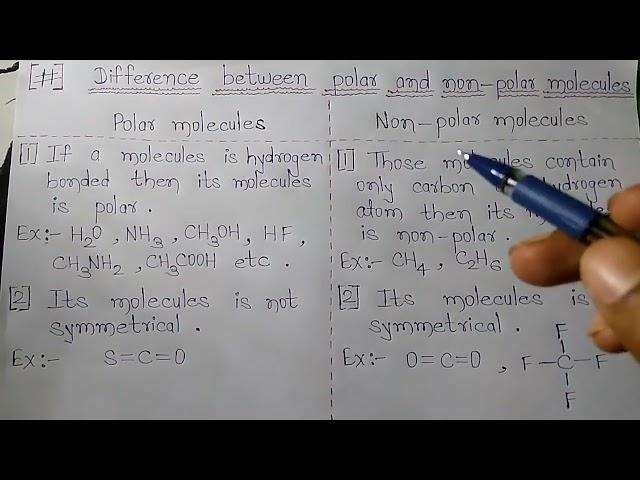 [#] Difference between polar and non-polar molecules
Polar molecules
[1] If a molecules is hydrogen
bonded then its molecules
is polar.
Ex:- H₂O, NH₃, CH₃OH, HF,
CH₃NH₂, CH₃COOH etc.
[2] Its molecules is not
symmetrical.
Ex:- S=C=O
Non-polar molecules
[1] Those molecules contain
only carbon hydrogen
atom then its
is non-polar.
Ex:- CH₄, C₂H₆
[2] Its molecules is
symmetrical.
Ex:- O=C=O, F-C-F
F
F